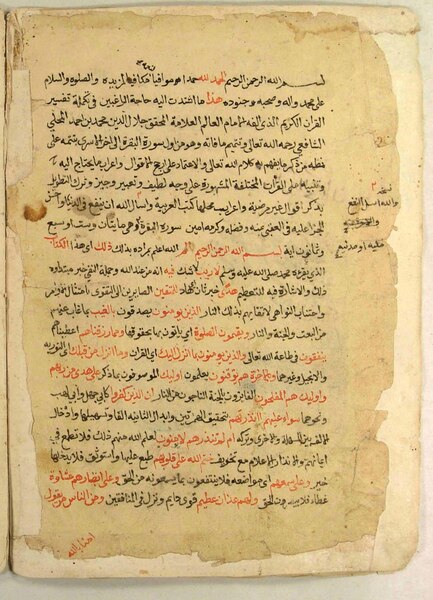 بسم الله الرحمن الرحيم الحمد لله حمدا موافيا مكافيا لمزيده والصلوة والسلام
على محمد واله وصحبه وجنوده هذا ما اشتدت اليه حاجة الراغبين في تكملة تفسير
القران الكريم الذي الفه الامام العالم العلامة المحقق جلال الدين محمد بن احمد المحلي
الشافعي رحمه الله تعالى وتتميم ما فاته وهو من اول سورة البقرة الى اخر الاسرى بتتمة على
نمطه من ذكر ما يفهم به كلام الله تعالى والاعتماد على ارجح الاقوال واعراب ما يحتاج اليه
وتنبيه على القرات المختلفة المشهورة على وجه لطيف وتعبير وجيز وترك التطويل
بذكر اقوال غير مرضية واعاريب محلها كتب العربية واسال الله ان ينفع به في الدنيا واحسن
الجزاء عليه في العقبى بمنه وكرمه امين سورة البقرة مايتان وست او سبع
وثمانون اية بسم الله الرحمن الرحيم الم الله اعلم بمراده بذلك ذلك اي هذا الكتاب
الذي يقروه محمد صلى الله عليه وسلم لا ريب شك فيه انه من عند الله وجملة النفي خبر مبتداوه
ذلك والاشارة به للتعظيم هدى خبر ثان هاد للمتقين الصايرين الى التقوى بامتثال الاوامر
واجتناب النواهي لاتقائهم بذلك النار الذين يومنون يصدقون بالغيب بما غاب عنهم
من البعث والجنة والنار ويقيمون الصلوة اي ياتون بها بحقوقها ومما رزقناهم اعطيناهم
ينفقون في طاعة الله تعالى والذين يومنون بما انزل اليك اي القران وما انزل من قبلك اي التورية
والانجيل وغيرهما وبالاخرة هم يوقنون يعلمون اوليك الموصوفون بما ذكر على هدى من ربهم
واوليك هم المفلحون الفايزون بالجنة الناجون من النار ان الذين كفروا كابي جهل وابي لهب
ونحوهما سواء عليهم ءانذرتهم بتحقيق الهمزتين وابدال الثانية الفا وتسهيلها وادخال
الف بين المسهلة والاخرى وتركه ام لم تنذرهم لا يومنون لعلم الله منهم ذلك فلا تطمع في
ايمانهم والانذار اعلام مع تخويف ختم الله على قلوبهم طبع عليها واستوثق فلا يدخلها
خير وعلى سمعهم اي مواضعه فلا ينتفعون بما يسمعونه من الحق وعلى ابصارهم غشاوة
غطاء فلا يبصرون الحق ولهم عذاب عظيم قوي دايم ونزل في المنافقين ومن الناس من يقول
امنا بالله
نسخه
والله اسال النفع